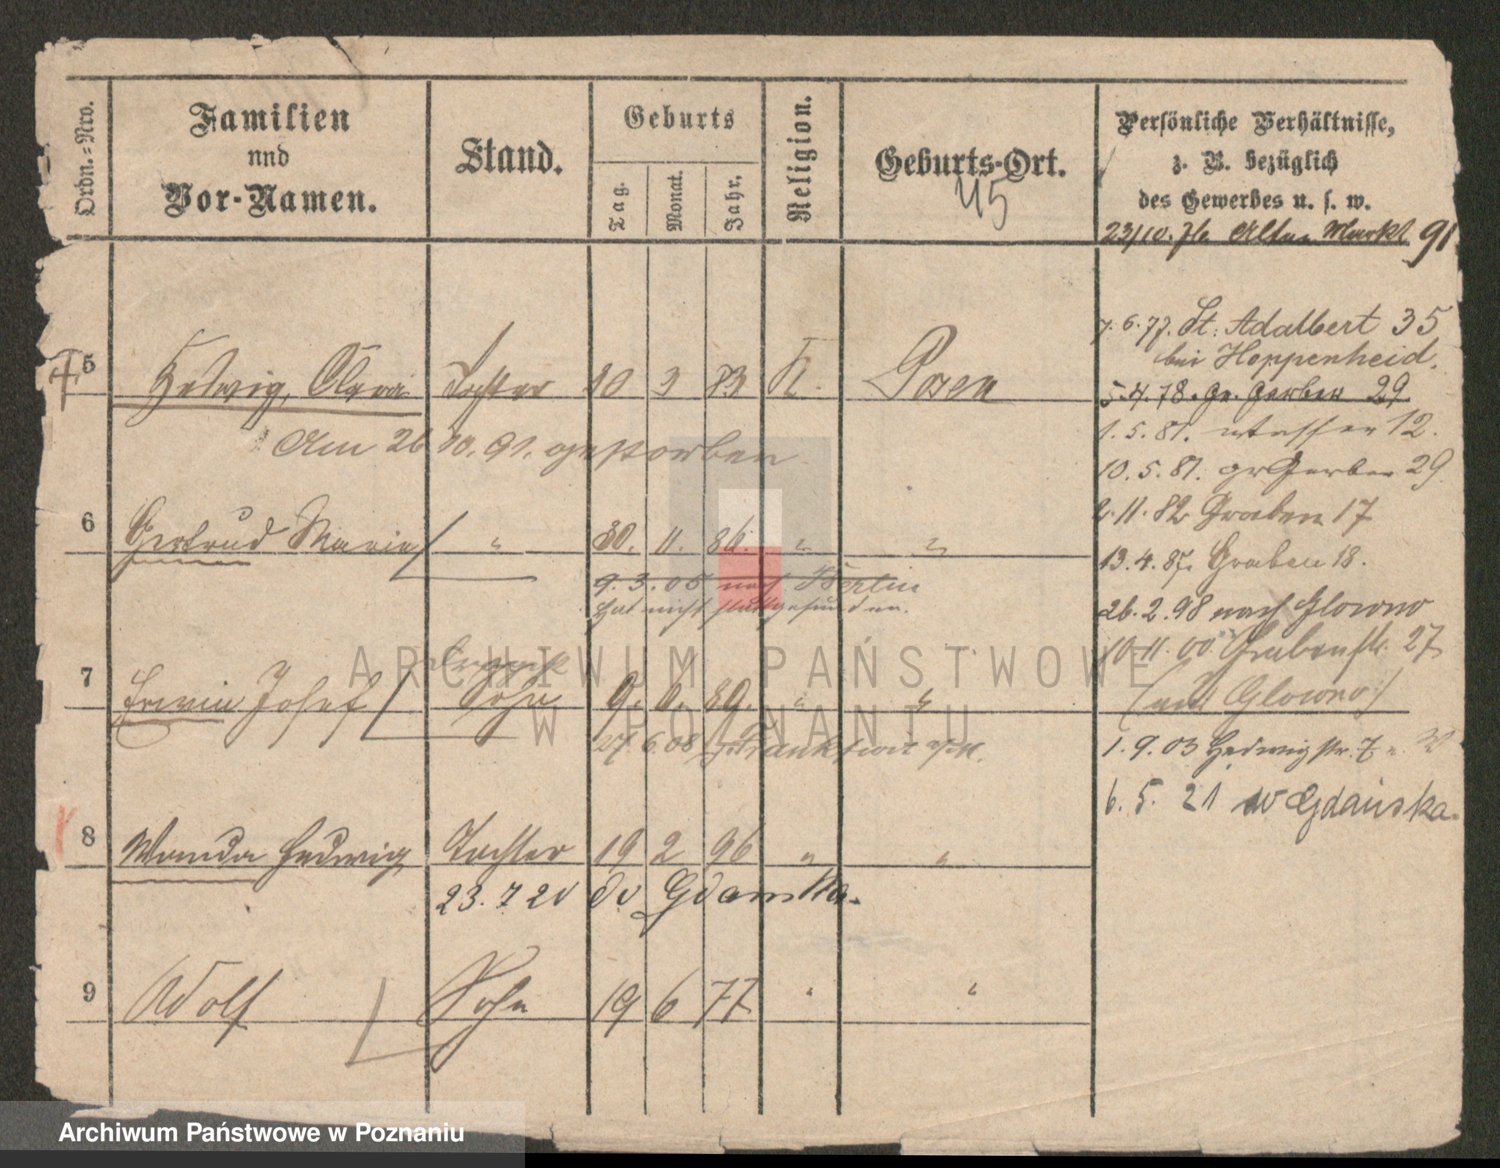 Ordn.-Nro.
Familien
nnd
Vor-Namen.
Stand.
Geburts
Tag.
Monat.
Jahr.
Religion.
Geburts-Ort.
45
Persönliche Verhältnisse,
z. B. bezüglich
des Gewerbes u. s. w.
23/10. 76 Alter Markt 91
7.6.77. St. Adalbert 35
bei Hoppenheid.
5 Hedwig, Clara Tochter 10 3 83 K. Posen
5.4.78. gr. Gerber 29
Am 26 10. 91. gestorben
1.5.81. 12.
10.5.81. gr Gerber 29
2.11.82 Graben 17
6 Gertrud Maria " 30. 11. 86. " "
13.4.87. Graben 18.
9.3.05 nach Berlin
hat nicht stattgefunden.
26.2.98 nach Glowno
10.11.00 Grabenstr. 27
7 Erwin Josef Sohn 9. 6. 89. " "
(aus Glowno)
27.6.08 Frankfurt a/M.
1.9.03 Hedwigstr. 7
6. 5. 21 w Gdańska.
8 Wanda Hedwig Tochter 19 2 96 " "
23. 7 20 do Gdańska.
9 Adolf Sohn 19 6 77 " "
ARCHIWUM PAŃSTWOWE
W POZNANIU
Archiwum Państwowe w Poznaniu